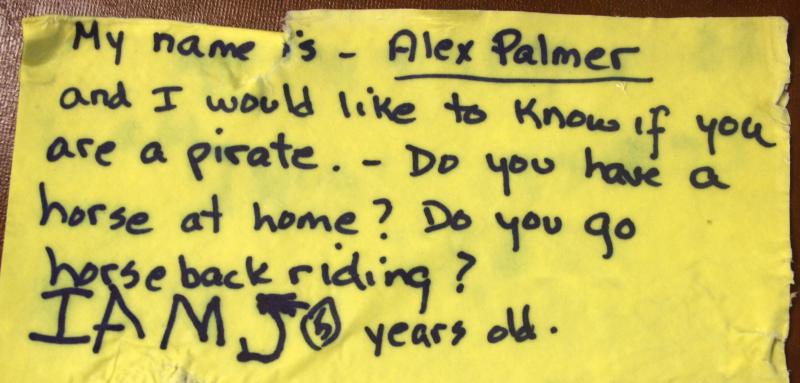 My name is - Alex Palmer
and I would like to know if you
are a pirate. - Do you have a
horse at home? Do you go
horseback riding?
I AM 5 5 years old.